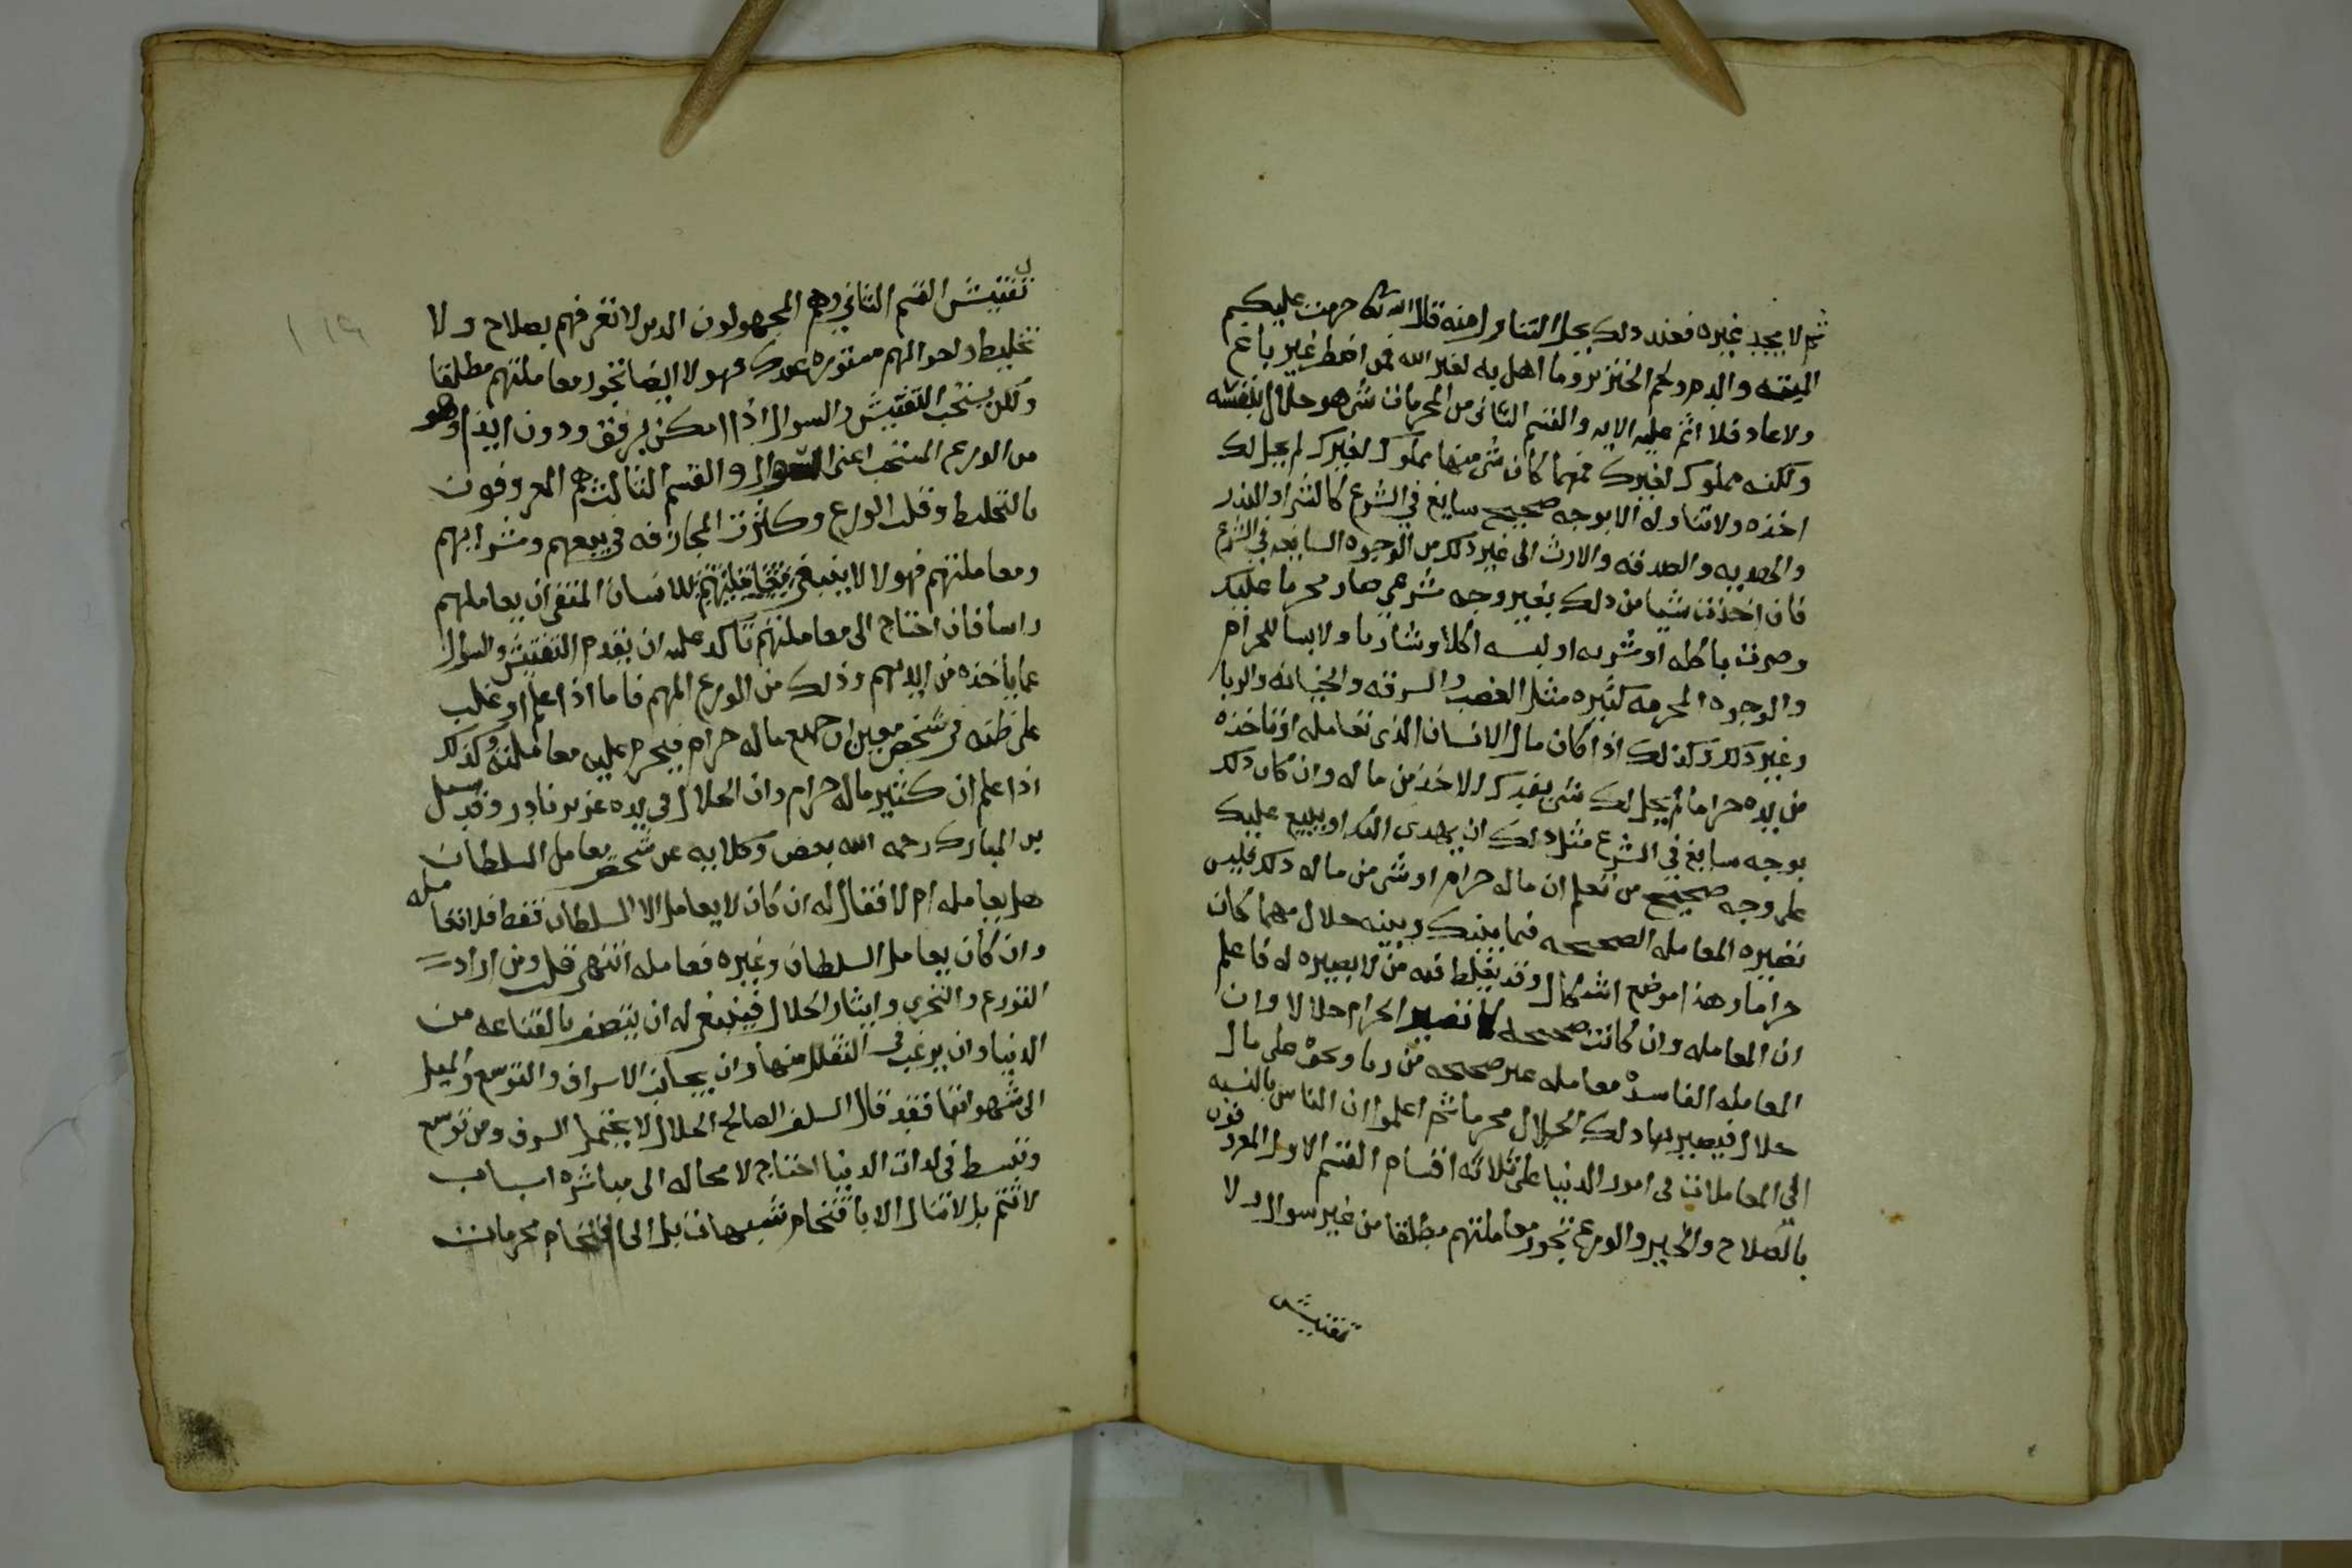 ثم لا يجد غيره فعند ذلك يحل التناول منه قال الله تعالى حرمت عليكم
الميتة والدم ولحم الخنزير وما اهل به لغير الله فمن اضطر غير باغ
ولا عاد فلا اثم عليه الايه والقسم الثاني من المحرمات شي هو حلال بنفسه
ولكنه مملوك لغيرك فمهما كان شي منها مملوك لغيرك لم يحل لك
اخذه ولا تناوله الا بوجه صحيح سايغ في الشرع كالشرا والنذر
والهديه والصدقه والارث الى غير ذلك من الوجوه السايغه في الشرع
فان اخذت شيا من ذلك بغير وجه شرعي صار محرما عليك
وصرت باكله او شربه او لبسه اكلا وشاربا ولابسا للحرام
والوجوه المحرمه كثيره مثل الغصب والسرقه والخيانه والربا
وغير ذلك وكذلك اذا كان مال الانسان الذي تعامله او تاخذه
من يده حراما لم يحل لك شي بعد ذلك الاخذ من ماله وان كان ذلك
بوجه سايغ في الشرع مثل ذلك ان يهدي اليك او يبيع عليك
على وجه صحيح من تعلم ان ماله حرام او شي من ماله ذلك فليس
تصيره المعامله الصحيحه فيما بينك وبينه حلال مهما كان
حراما وهذا موضع اشكال وقد يغلط فيه من لا بصيره له فاعلم
ان المعامله وان كانت صحيحه لا تصير الحرام حلالا وان
المعامله الفاسده معامله غير صحيحه من ربا ونحوه على مال
حلال فيصير بها ذلك الحلال محرما ثم اعلموا ان الناس بالنسبه
الى المعاملات في امور الدنيا على ثلاثه اقسام القسم الاول المعروفون
بالصلاح والخير والورع تجوز معاملتهم مطلقا من غير سوال ولا
تفتيش
تفتيش القسم الثاني وهم المجهولون الذين لا تعرفهم بصلاح ولا
تخليط واحوالهم مستوره عندك فهولا ايضا تجوز معاملتهم مطلقا
ولكن يستحب التفتيش والسوال اذا امكن برفق ودون ايذا وهو
من الورع المستحب اعني السوال والقسم الثالث هم المعروفون
بالتخليط وقلت الورع وكثرت المجازفه في بيعهم وشرايهم
ومعاملتهم فهولا لا ينبغي للانسان المتقي ان يعاملهم
راسا فان احتاج الى معاملتهم تاكد عليه ان يقدم التفتيش والسوال
عما ياخذه من ايديهم وذلك من الورع المهم فاما اذا علم او غلب
على ظنه في شخص معين ان جميع ماله حرام فيحرم عليه معاملته وكذلك
اذا علم ان كثير ماله حرام وان الحلال في يده عزيز نادر وقد سيل
بن المبارك رحمه الله بعض وكلايه عن شخص يعامل السلطان
هل يعامله ام لا فقال له ان كان لا يعامل الا السلطان فقط فلا تعامله
وان كان يعامل السلطان وغيره فعامله انتهى قلت ومن اراد
التورع والتحري وايثار الحلال فينبغي له ان يتصف بالقناعه من
الدنيا وان يرغب في التقلل منها وان يجانب الاسراف والتوسع والميل
الى شهواتها فقد قال السلف الصالح الحلال لا يحتمل السرف ومن توسع
وتبسط في لذات الدنيا احتاج لا محاله الى مباشره اسباب
لا تتم بل لا تنال الا باقتحام شبهات بل الى اقتحام محرمات
١١٩